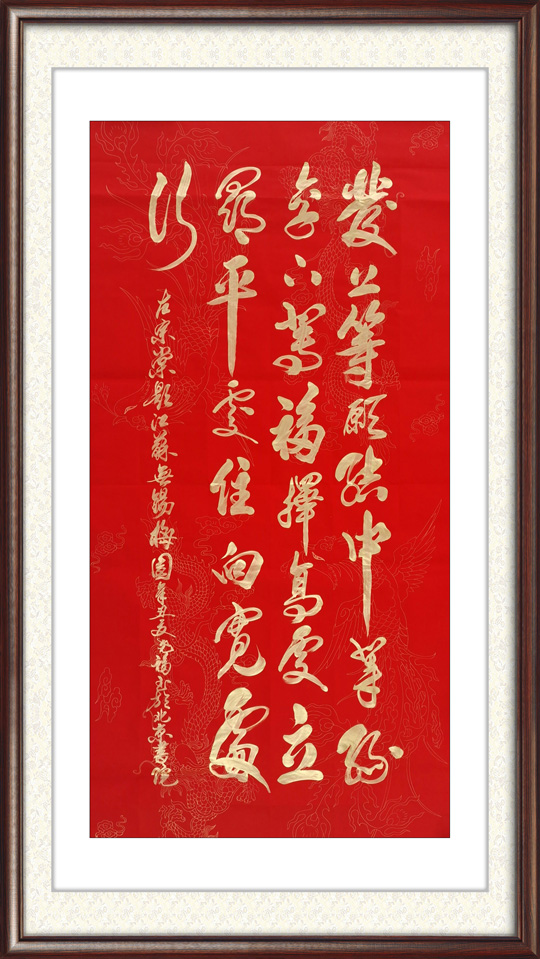 發上等願結中等緣
享下等福擇高處立
尋平處住向寬處
行
左宗棠題江蘇無錫梅園辛丑夏書於北京書院